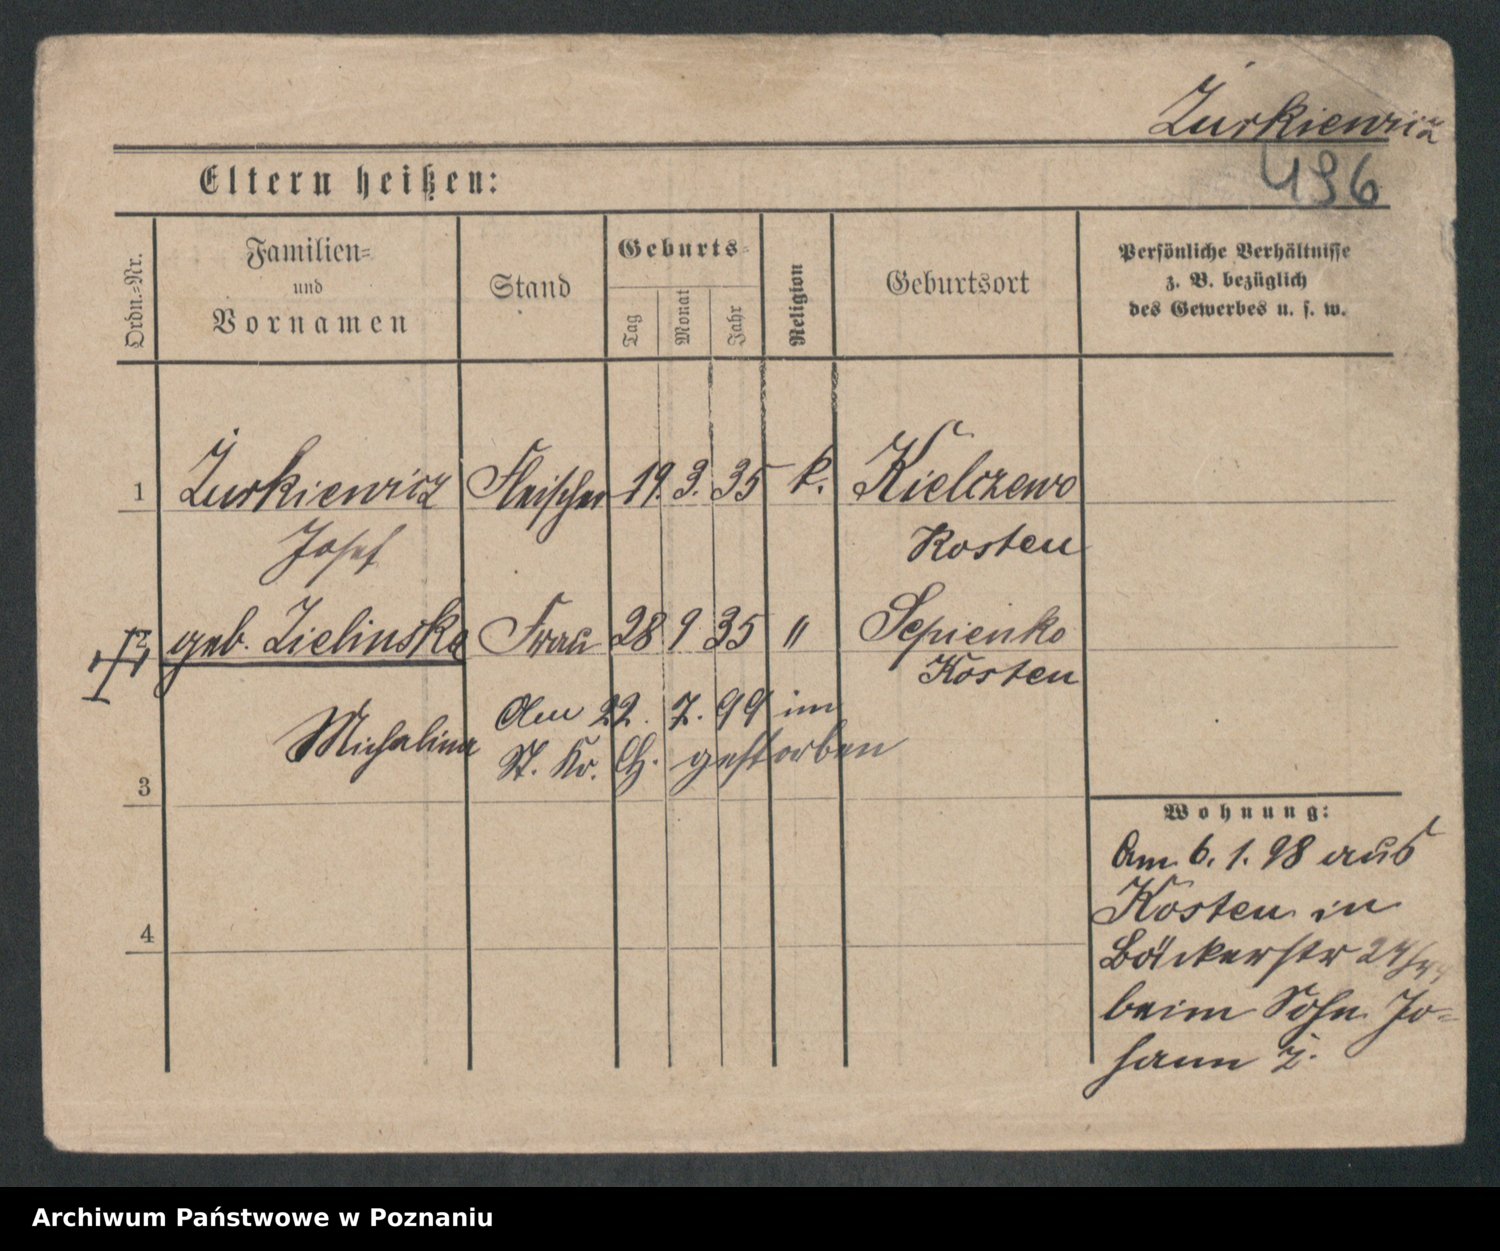 Żurkiewicz
496
Eltern heißen:
Ordn.-Nr.
Familien-
und
Vornamen
Stand
Geburts-
Tag
Monat
Jahr
Religion
Geburtsort
Persönliche Verhältnisse
z. B. bezüglich
des Gewerbes u. s. w.
1 Żurkiewicz Fleischer 19. 3. 35 k. Kielczewo
Josef Kosten
geb. Zielinska Frau 28 9 35 " Sepienko
Kosten
Michalina
Am 22. 7. 99 im
St. Kr. H. gestorben
3
4
Wohnung:
Am 6. 1. 98 aus
Kosten in
Bäckerstr 24
beim Sohn Jo-
hann Ż.
Archiwum Państwowe w Poznaniu